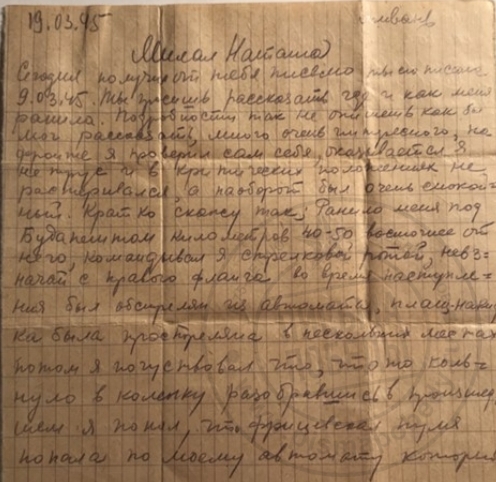 19.03.45
Милая Наташа
Сегодня получил от тебя письмо ты его писала
9.03.45. Ты просишь рассказать где и как меня
ранило. Подробности так не опишешь как бы
мог рассказать, много очень
я проверил сам себя, оказывается я
не трус и в критических положениях не
растеривался, а наоборот был очень спокой-
ный. Кратко скажу так; Ранило меня под
Будапештом километров 40-50 восточнее от
него, командывал я стрелковой ротой, невз=
начай, с правого фланга во время наступле=
ния был обстрелян из автомата, плащ-накид
ка была простреляна в нескольких местах
потом я почуствовал что, что то коль-
нуло в коленку разобравшись в происшед
шем я понял, что фрицевская пуля
попала по моему автомату который